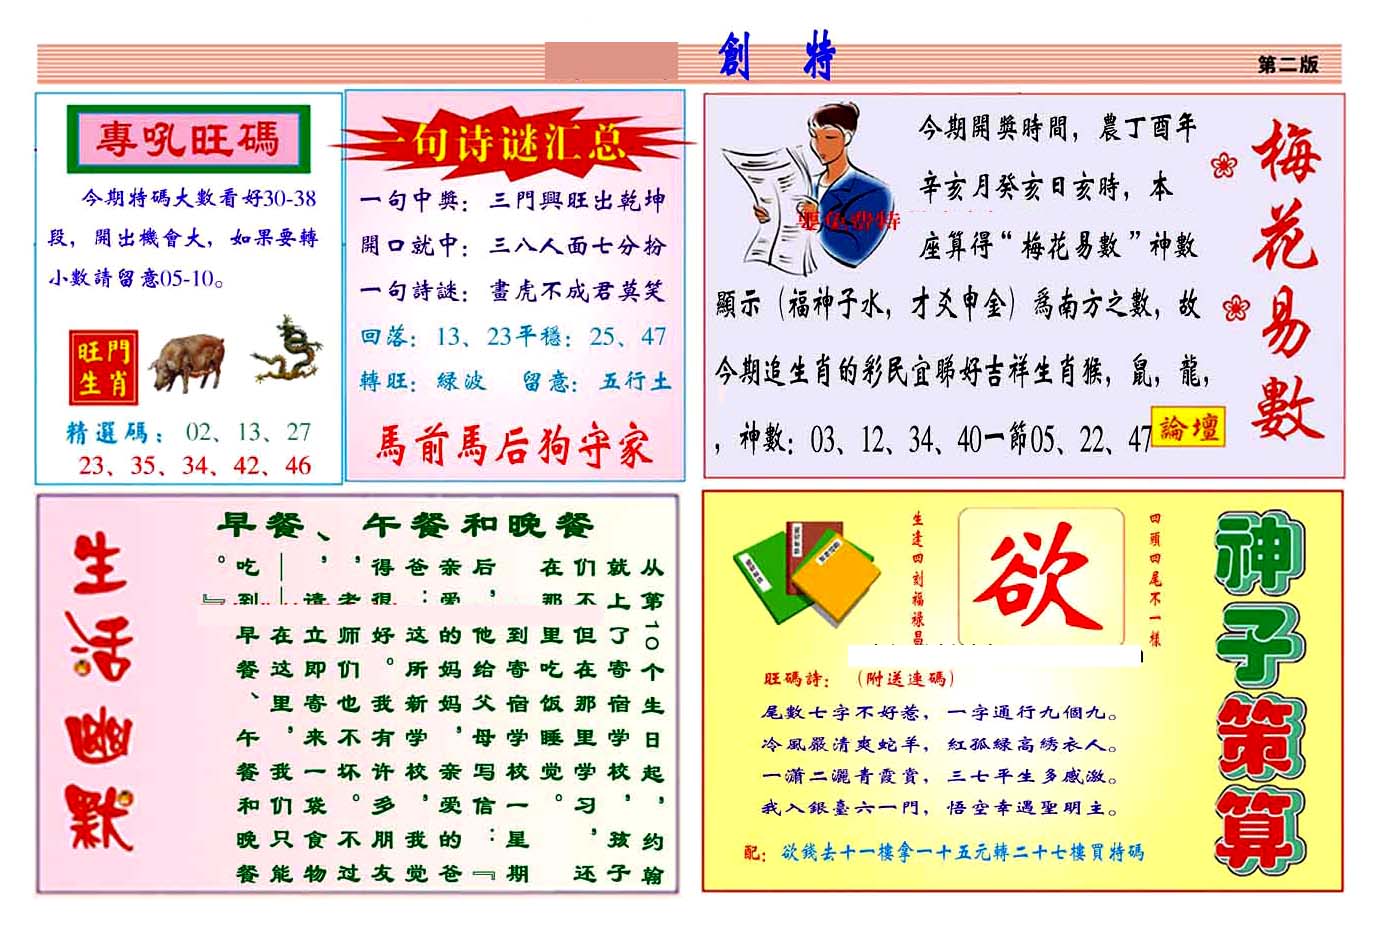 創 特
第二版
專吼旺碼
今期特碼大數看好30-38
段，開出機會大，如果要轉
小數請留意05-10。
旺門
生肖
精選碼：02、13、27
23、35、34、42、46
一句诗谜汇总
一句中獎：三門興旺出乾坤
開口就中：三八人面七分扮
一句詩謎：畫虎不成君莫笑
回落：13、23平穩：25、47
轉旺：緑波 留意：五行土
馬前馬后狗守家
今期開獎時間，農丁酉年
辛亥月癸亥日亥時，本
座算得“梅花易數”神數
顯示（福神子水，才爻申金）爲南方之數，故
今期追生肖的彩民宜睇好吉祥生肖猴，鼠，龍，
，神數：03、12、34、40一節05、22、47
論壇
梅花易數
生活幽默
早餐、午餐和晚餐
从第10个生日起，约翰
就上了寄宿学校，孩子
们不但在那里学习，还
在那里吃饭睡觉。
到寄宿学校一星期
后，他给父母写信：『
亲爱的妈妈，亲爱的爸
爸：这所新学校，我觉
得很好。我有许多朋友
，老师们也不坏。不过
，请立即寄来一袋食物
——在这里，我们只能
吃到早餐、午餐和晚餐
。』
生逢四刻福禄昌
欲
四頭四尾不一様
神子策算
旺碼詩：（附送連碼）
尾數七字不好惹，一字通行九個九。
冷風嚴清爽蛇羊，紅孤緑高綉衣人。
一瀟二灑青霞賞，三七平生多感激。
我入銀臺六一門，悟空幸遇聖明主。
配：欲錢去十一樓拿一十五元轉二十七樓買特碼